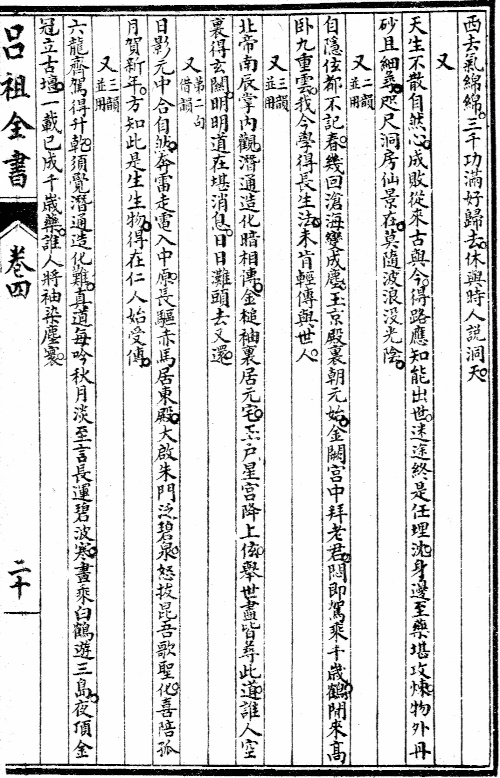 西去氣綿綿三千功滿好歸去休與時人説洞天
又
天生不散自然心成敗從來古與今得路應知能出世迷途終是任埋沈身邊至藥堪攻煉物外丹
砂且細尋咫尺洞房仙景在莫隨波浪没光陰
又二韻並用
自隱位都不記春幾回滄海變成塵玉京殿裏朝元始金闕宮中拜老君悶即駕乘千歳鶴閒來高
卧九重雲我今學得長生法未肯輕傳與世人
又三韻並用
北帝南辰掌内觀潛通造化暗相傳金槌袖裏居元宅玉户星宮降上僊舉世盡皆尋此道誰人空
裏得玄關明明道在堪消息日日灘頭去又還
又第二句借韻
日影元中合自然奔雷走電入中原長驅赤馬居東殿大啟朱門泛碧泉怒拔昆吾歌聖化喜陪孤
月賀新年方知此是生生物得在仁人始受傳
又三韻並用
六龍齊駕得升乾須覺潛通造化難真道每吟秋月淡至言長運碧波寒晝乘白鶴遊三島夜頂金
冠立古壇一載已成千歳藥誰人將袖染塵寰
吕祖全書
卷四
二十